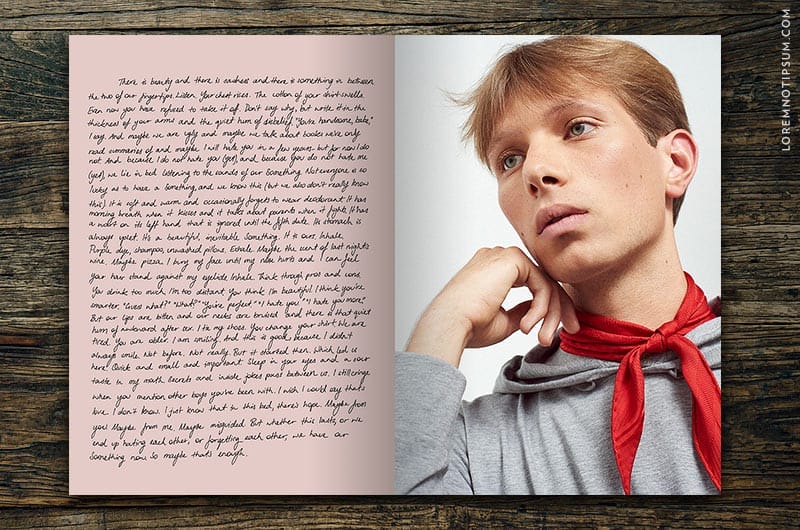 There is beauty and there is sadness and there is something in between
the two of our fingertips. Listen. Your chest rises. The cotton of your shirt swells.
Even now you have refused to take it off. Don't say why, but write it in the
thickness of your arms and the quiet hum of disbelief. "You're handsome, babe,"
I say. And maybe we are ugly and maybe we talk about books we've only
read summaries of and maybe I will hate you in a few years. but for now I do
not. And because I do not hate you (yet) and because you do not hate me
(yet), we lie in bed listening to the sounds of our Something. Not everyone is so
lucky as to have a Something, and we know this (but we also don't really know
this). It is soft and warm and occasionally forgets to wear deodorant. It has
morning breath when it kisses and it talks about parents when it fights. It has
a wart on its left hand that is ignored until the fifth date. Its stomach is
always upset. It's a beautiful, inevitable Something. It is ours. Inhale.
Purple dye, shampoo, unwashed pillows. Exhale. Maybe the scent of last night's
wine. Maybe pizza. I bury my face until my nose hurts and I can feel
your hair stand against my eyelids. Inhale. Think through pros and cons.
You drink too much. I'm too distant. You think I'm beautiful. I think you're
smarter. "Guess what?" "What?" "You're perfect." "I hate you." "I hate you more."
But our lips are bitten and our necks are bruised and there is that quiet
hum of awkward after sex. I tie my shoes. You change your shirt. We are
tired. You are older. I am smiling. And this is good because I didn't
always smile. Not before. Not really. But it started then. Which led us
here. Quick and small and important. Sleep in your eyes and a sour
taste in my mouth. Secrets and inside jokes pass between us. I still cringe
when you mention other boys you've been with. I wish I could say that's
love. I don't know. I just know that in this bed, there's hope. Maybe from
you. Maybe from me. Maybe misguided. But whether this lasts, or we
end up hating each other, or forgetting each other, we have our
Something now. So maybe that's enough.
LOREMNOTIPSUM.COM